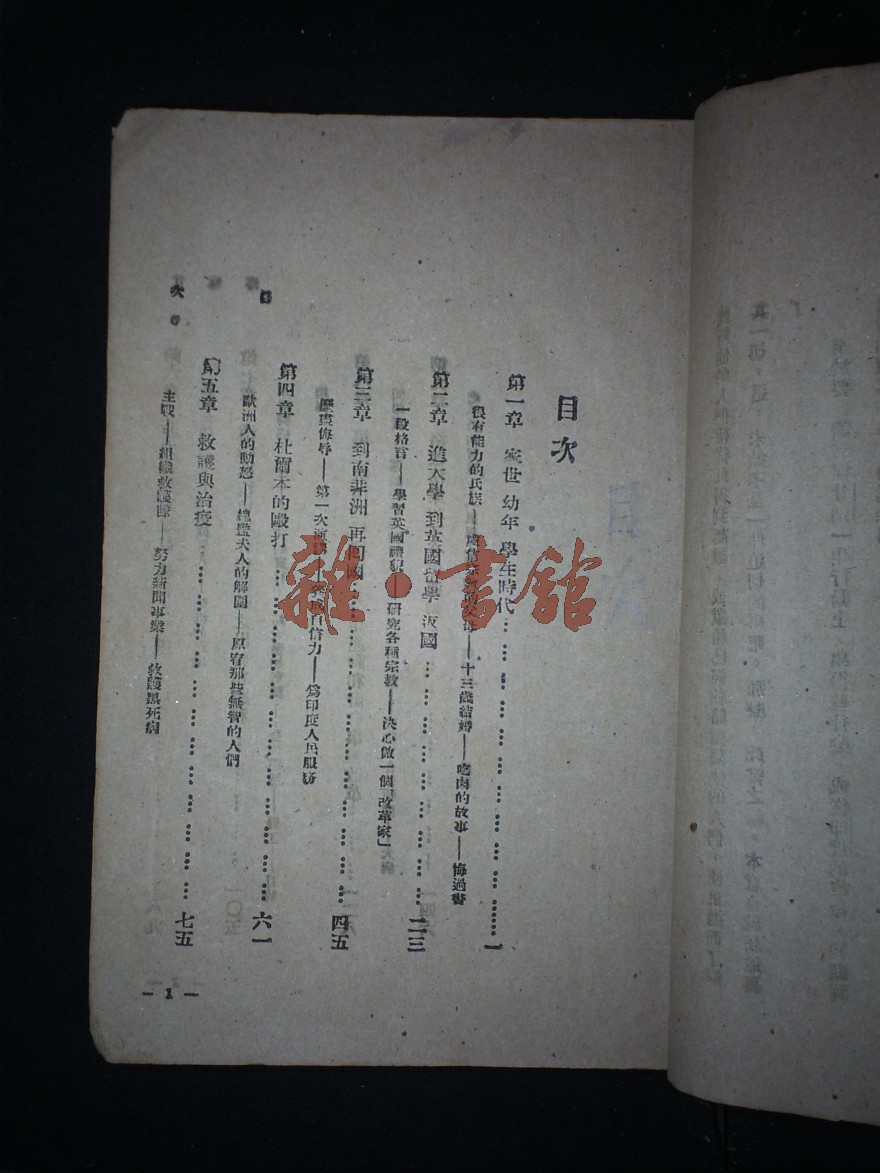 目次
第一章 家世 幼年 學生時代…………………一
很有能力的民族——十三歲結婚——吃肉的故事——悔過書
第二章 進大學 到英國留學 返國…………………二三
一段格言——學習英國禮貌——研究各種宗教——決心做一個「改革家」
第三章 到南非洲 再回國…………………四五
歷盡侮辱——第一次演講——養成自信力——爲印度人民服務
第四章 杜爾本的毆打…………………六一
歐洲人的動怒——總監夫人的解圍——原宥那些無智的人們
第五章 救護與治疫…………………七五
主戰——組織救護隊——努力新聞事業——救護黑死病
次
— 1 —
雜·書館